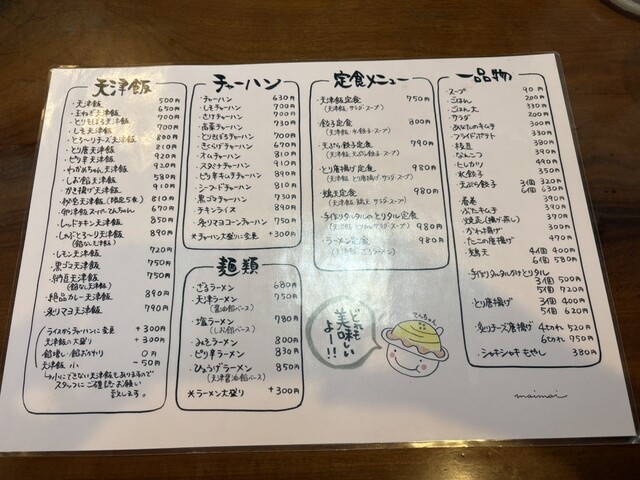 天津飯
・天津飯 500円
・玉ねぎ天津飯 650円
・とりそぼろ天津飯 700円
・しそ天津飯 700円
・とろ〜りチーズ天津飯 800円
・とり唐天津飯 810円
・ピリ辛天津飯 910円
・わかめちゃん天津飯
・しお餡天津飯 580円
・かき揚げ天津飯 910円
810円
・卵2倍スーパーてんちゃん 650円
・レッドチキン天津飯 850円
・しゃぶとろ〜り天津飯 890円
・レモン天津飯 720円
・黒ゴマ天津飯 750円
・納豆天津飯 750円
(餡なし天津飯)
・絶品カレー天津飯 890円
・炙りマヨ天津飯 790円
・ライスからチャーハンに変更 +300円
天津飯大盛り +300円
餡増し・餡おかわり 0円
天津飯 小 -50円
↳小にできない天津飯もありますので
スタッフにご確認お願い
致します。
チャーハン
・チャーハン 630円
・しそチャーハン 700円
・キムチチャーハン 700円
・高菜チャーハン 730円
・とりそぼろチャーハン 700円
・きくらげチャーハン 670円
・オムチャーハン 810円
・スタミナチャーハン 910円
・ピリ辛キムチチャーハン 810円
・シーフードチャーハン 910円
・黒ゴマチャーハン 730円
・チキンライス 890円
・炙りマヨコーンチャーハン 750円
※チャーハン大盛りに変更 +300円
麺類
・ざるラーメン 680円
・天津ラーメン 750円
(醤油餡ベース)
・塩ラーメン 780円
(しお餡ベース)
・みそラーメン 800円
・ピリ辛ラーメン 830円
・ひょうげラーメン 850円
(天津醤油餡ベース)
※ラーメン大盛り +300円
定食メニュー
・天津飯定食 750円
(天津飯 サラダ・スープ)
・餃子定食 800円
(天津飯 水餃子・スープ)
・天ぷら餃子定食 790円
(天津飯 天ぷら餃子・スープ)
・とり唐揚げ定食 980円
(天津飯 とり唐揚げ サラダ・スープ)
・鶏天定食 980円
(天津飯 鶏天 サラダ・スープ)
・手作りタルタルのとりタル定食
(天津飯 とりタル サラダ・スープ) 980円
・ラーメン定食 980円
どれも
美味しい
よー!!
てんちゃん
一品物
・スープ 90円
・ごはん 200円
・ごはん大 330円
・サラダ 200円
・あなたのキムチ 300円
・フライドポテト 330円
・枝豆 380円
・なんこつ 390円
・ヒレカツ 490円
・水餃子 350円
・天ぷら餃子 3個 320円
6個 630円
・春巻 390円
・ぶたキムチ 390円
・焼売(揚げ・蒸し) 370円
・かわ揚げ 300円
・たこの唐揚げ 470円
・鶏天 4個 400円
6個 580円
・手作りタルタルかけとりタル
3個 500円
5個 720円
・とり唐揚げ 3個 400円
5個 620円
・炙りチーズ唐揚げ 4コ 520円
6コ 950円
・シャキシャキもやし 380円
maimai